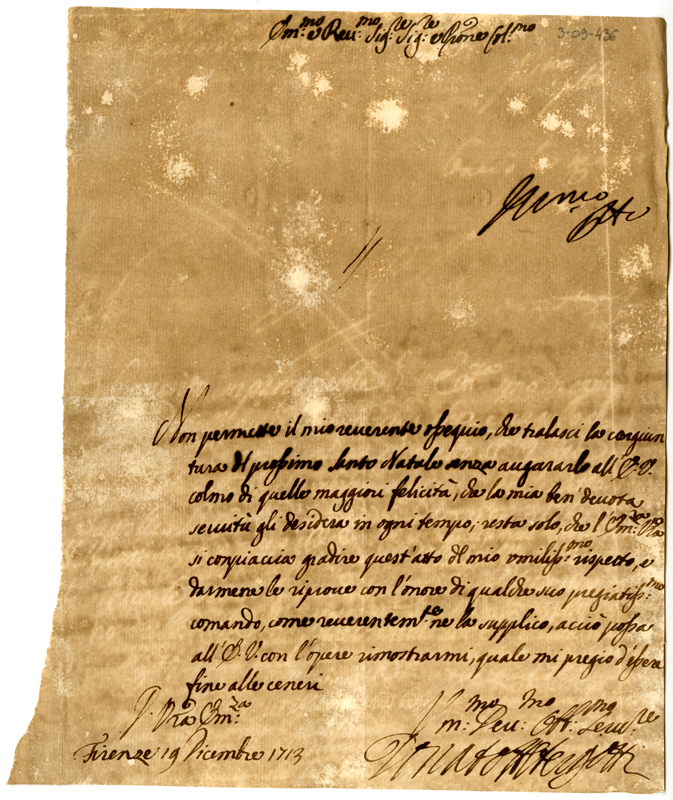 Em:mo e Reu:mo Sig:re Sig:re e Prone Col:mo
3-09-436
Non permette il mio reuerente ossequio, che tralasci la congiun
tura del prossimo Santo Natale senza augurarlo all'E.V.
colmo di quelle maggiori felicità, che la mia ben' deuota
seruitù gli desidera in ogni tempo; resta solo, che l'Em:za Vra
si conpiaccia gradire quest'atto del mio vmiliss:mo rispetto, e
darmene le riproue con l'onore di qualche suo pregiatiss:mo
comando, come reuerentem:te ne la supplico, acciò possa
all'E.V. con l'opere rimostrarmi, quale mi pregio d'essere
fine alle ceneri
Vra Em:za
Firenze 19 Dicembre 1713
Vm:mo Deu:mo Obb:mo Seru:re